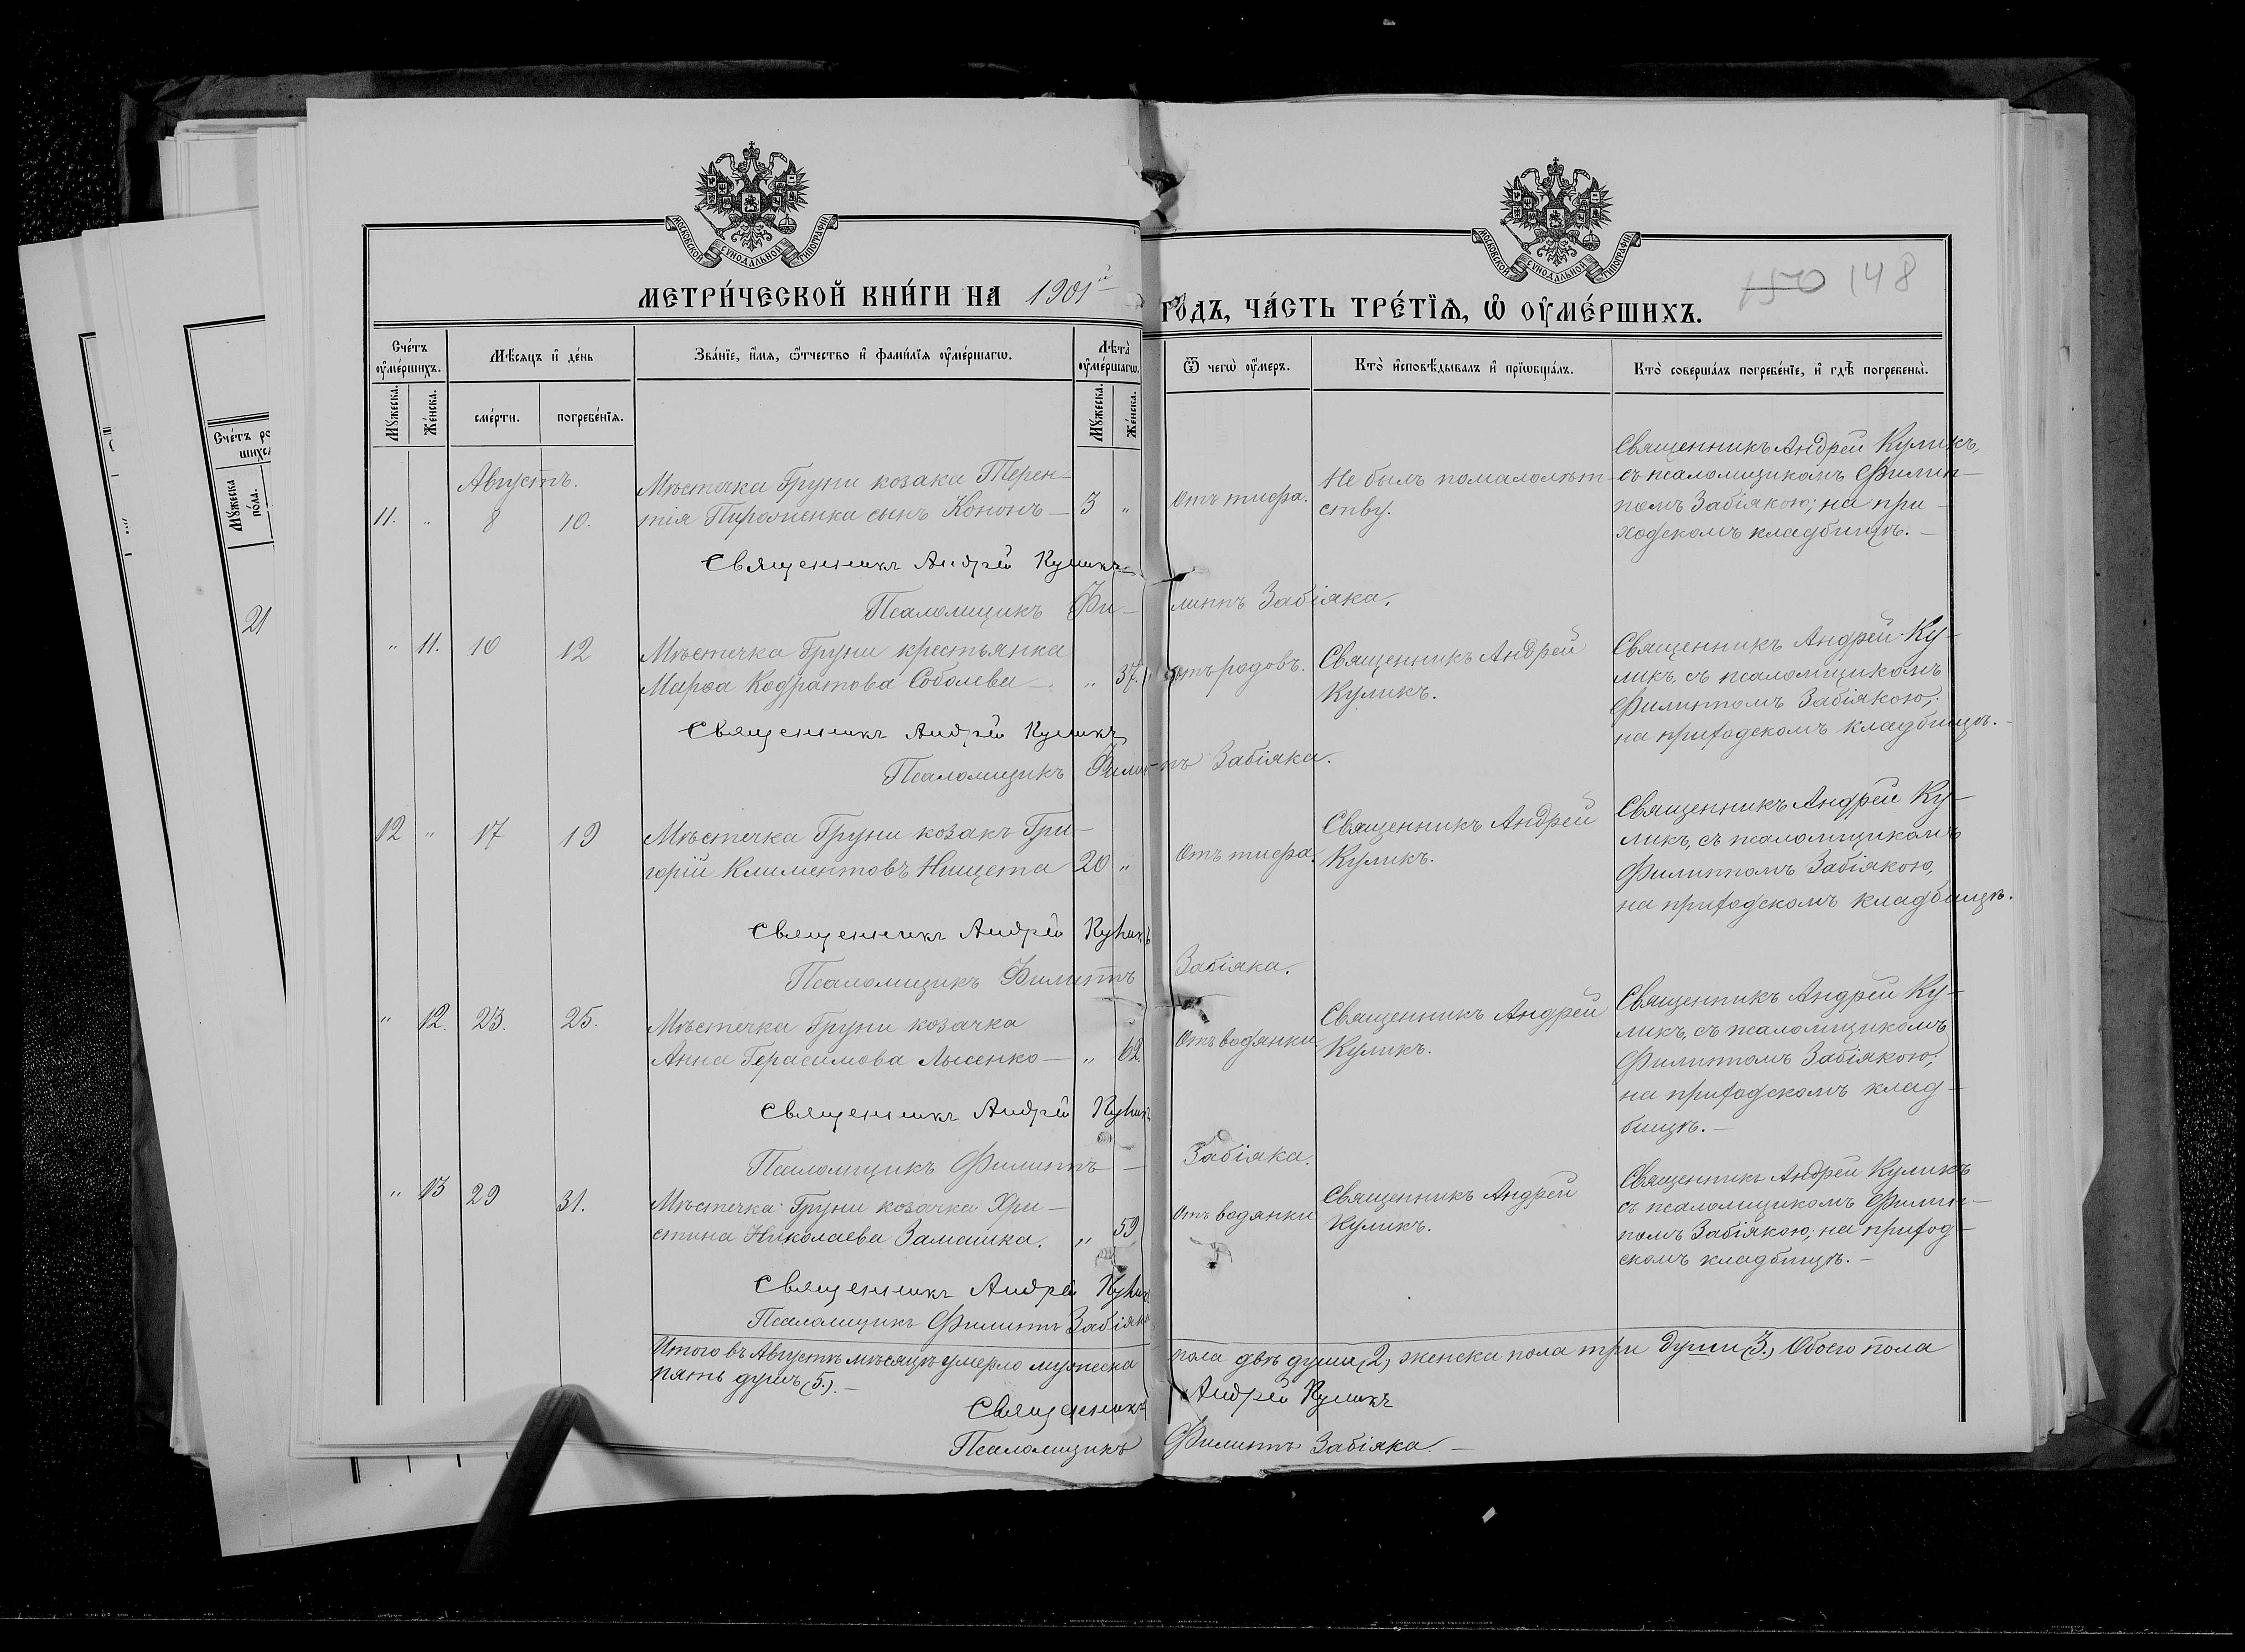 МОСКОВСКОЙ СУНОДАЛЬНОЙ ТИПОГРАФІИ
МОСКОВСКОЙ СУНОДАЛЬНОЙ ТИПОГРАФІИ
150 148
МЕТРИ́ЧЕСКОЙ КНИ́ГИ НА 1901й ГО́ДЪ, ЧА́СТЬ ТРЕ́ТЇѦ, Ѡ҆ ОУ҆МЕ́РШИХЪ.
Сче́тъ оу҆ме́ршихъ.
Мѣ́сѧцъ и҆ де́нь
Зва́нїе, и҆́мѧ, ѻ҆́тчество и҆ фами́лїѧ оу҆ме́ршагѡ.
Лѣ́та оу҆ме́ршагѡ.
Ѿ чегѡ̀ оу҆́меръ.
Кто̀ и҆сповѣ́дывалъ и҆ прїѡбща́лъ.
Кто̀ соверша́лъ погребе́нїе, и҆ гдѣ̀ погребены̀.
Мꙋ́жеска.
Же́нска.
сме́рти.
погребе́нїѧ.
Мꙋ́жеска.
Же́нска.
Сче́тъ
Мꙋ́жеска по́ла.
21
Августъ.
11. " 8 10.
Мѣстечка Груни козака Терен-
тія Пироженка сынъ Кононъ — 3 "
Отъ тифа.
Не былъ помалолѣт-
ству.
Священникъ Андрей Куликъ,
съ псаломщикомъ Филип-
помъ Забіякою; на при-
ходскомъ кладбищѣ. —
Священникъ Андрей Куликъ
Псаломщикъ Фи- липпъ Забіяка.
" 11. 10 12
Мѣстечка Груни крестьянка
Марѳа Кодратова Соболева — " 37.
Отъ родовъ.
Священникъ Андрей
Куликъ.
Священникъ Андрей Ку-
ликъ, съ псаломщикомъ
Филиппомъ Забіякою;
на приходскомъ кладбищѣ. —
Священникъ Андрей Куликъ
Псаломщикъ Филип- пъ Забіяка.
12 " 17 19
Мѣстечка Груни козакъ Гри-
горій Климентовъ Нищета 20 "
Отъ тифа.
Священникъ Андрей
Куликъ.
Священникъ Андрей Ку-
ликъ, съ псаломщикомъ
Филиппомъ Забіякою,
на приходскомъ кладбищѣ.
Священникъ Андрей Куликъ
Псаломщикъ Филиппъ Забіяка.
" 12. 23. 25.
Мѣстечка Груни козачка
Анна Герасимова Лысенко — " 62
Отъ водянки
Священникъ Андрей
Куликъ.
Священникъ Андрей Ку-
ликъ, съ псаломщикомъ
Филиппомъ Забіякою;
на приходскомъ клад-
бищѣ. —
Священникъ Андрей Куликъ
Псаломщикъ Филиппъ — Забіяка.
" 13 29 31.
Мѣстечка Груни козачка Хри-
стина Николаева Замашка. " 59
Отъ водянки
Священникъ Андрей
Куликъ.
Священникъ Андрей Куликъ
съ псаломщикомъ Филип-
помъ Забіякою; на приход-
скомъ кладбищѣ. —
Священникъ Андрей Куликъ
Псаломщикъ Филиппъ Забіяка
Итого въ Августѣ мѣсяцѣ умерло мужеска пола двѣ души (2), женска пола три души (3.) Обоего пола
пять душъ (5.). —
Священникъ Андрей Куликъ
Псаломщикъ Филиппъ Забіяка. —